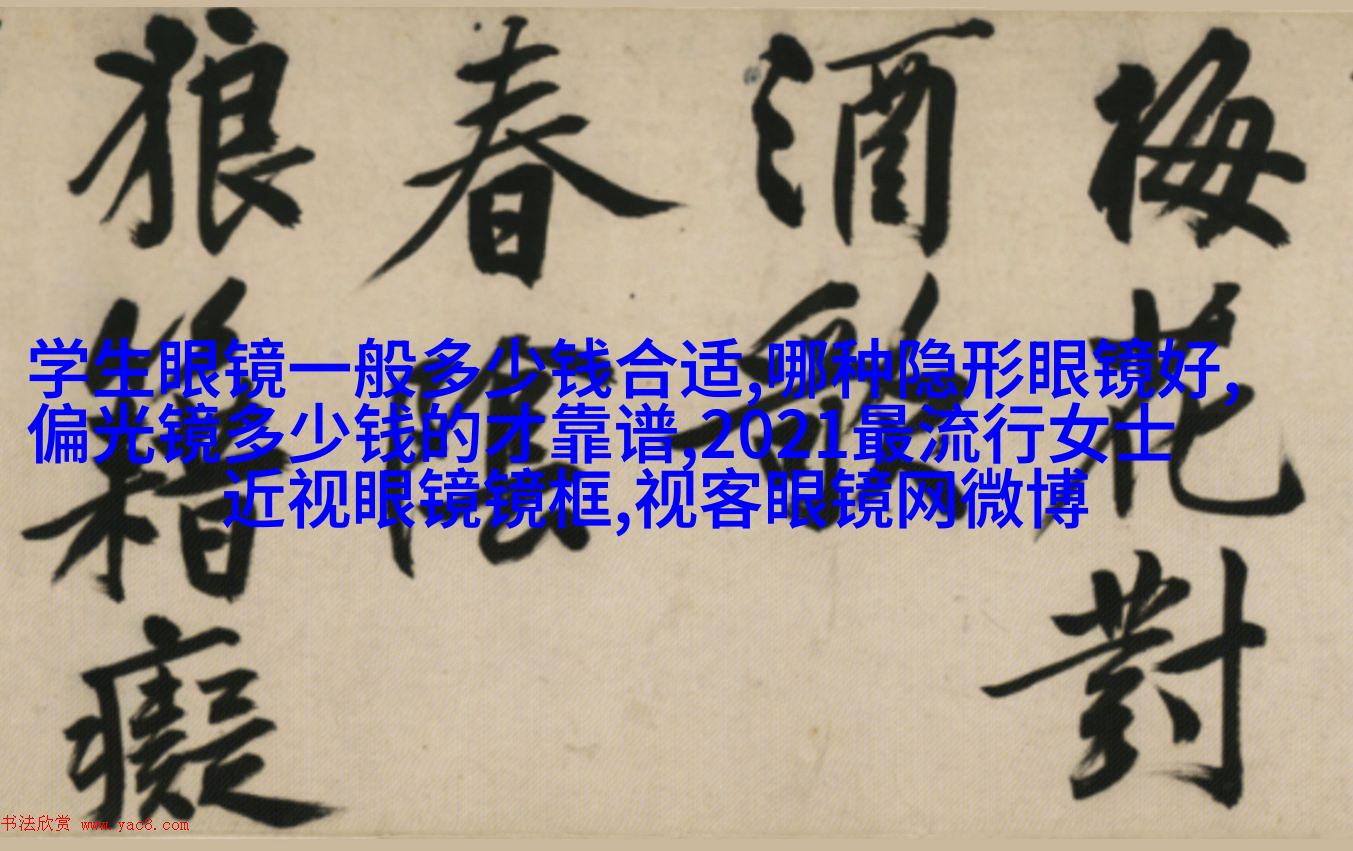 梅花對
酒
春
狼籍癡
学生眼镜一般多少钱合适,哪种隐形眼镜好,
偏光镜多少钱的才靠谱,2021最流行女士
近视眼镜镜框,视客眼镜网微博
书法欣赏 www.yac8.com